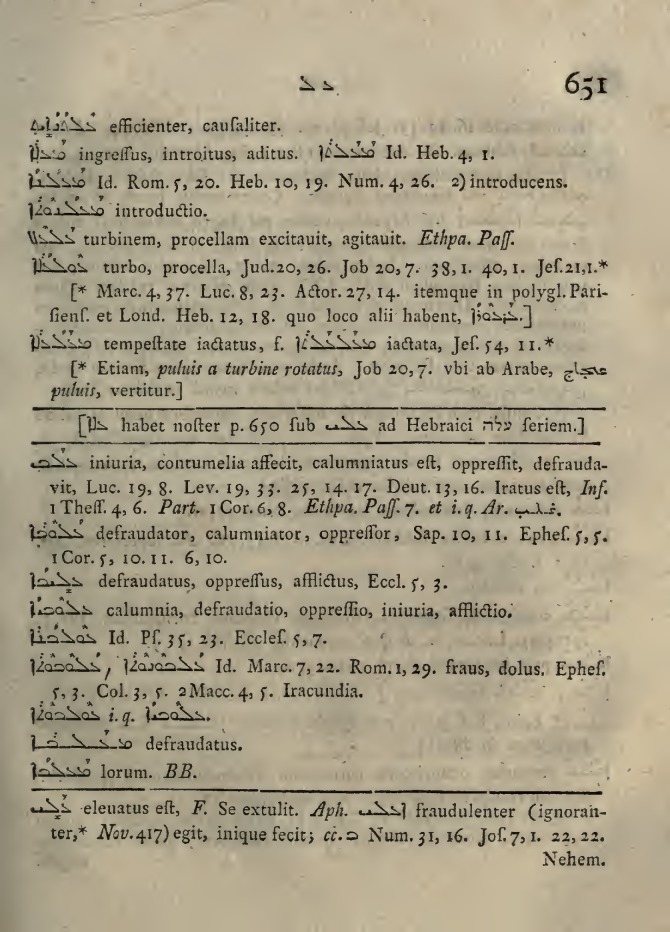 ܥܠ 651
ܥܠܬܢܐܝܬ efficienter, cauſaliter.
ܡܥܠܐ ingreſſus, introitus, aditus. ܡܥܠܬܐ Id. Heb. 4, 1.
ܡܥܠܢܐ Id. Rom. 5, 20. Heb. 10, 19. Num. 4, 26. 2) introducens.
ܡܥܠܢܘܬܐ introductio.
ܥܠܥܠ turbinem, procellam excitauit, agitauit. Ethpa. Paſſ.
ܥܠܥܠܐ turbo, procella, Jud. 20, 26. Job 20, 7. 38, 1. 40, 1. Jeſ. 21, 1.*
[* Marc. 4, 37. Luc. 8, 23. Actor. 27, 14. itemque in polygl. Pari-
ſienſ. et Lond. Heb. 12, 18. quo loco alii habent,
ܡܥܠܥܠܐ tempeſtate iactatus, f. ܡܥܠܥܠܬܐ iactata, Jeſ. 54, 11.*
[* Etiam, puluis a turbine rotatus, Job 20, 7. vbi ab Arabe, عجاج
puluis, vertitur.]
[ܥܠܐ habet noſter p. 650 ſub ܥܠܝ ad Hebraici עלה ſeriem.]
ܥܠܒ iniuria, contumelia affecit, calumniatus eſt, oppreſſit, defrauda-
vit, Luc. 19, 8. Lev. 19, 33. 25, 14. 17. Deut. 13, 16. Iratus eſt, Inf.
1 Theſſ. 4, 6. Part. 1 Cor. 6, 8. Ethpa. Paſſ. 7. et i. q. Ar. غلب.
ܥܠܘܒܐ defraudator, calumniator, oppreſſor, Sap. 10, 11. Epheſ. 5, 5.
1 Cor. 5, 10. 11. 6, 10.
ܥܠܝܒܐ defraudatus, oppreſſus, afflictus, Eccl. 5, 3.
ܥܠܘܒܝܐ calumnia, defraudatio, oppreſſio, iniuria, afflictio.
ܥܘܠܒܢܐ Id. Pſ. 35, 23. Eccleſ. 5, 7.
ܥܠܘܒܘܬܐ, ܥܠܘܒܢܘܬܐ Id. Marc. 7, 22. Rom. 1, 29. fraus, dolus. Epheſ.
5, 3. Col. 3, 5. 2 Macc. 4, 5. Iracundia.
ܥܘܠܒܘܬܐ i. q. ܥܠܘܒܝܐ.
ܡܥܠܒܐ defraudatus.
ܡܥܠܒܐ lorum. BB.
ܥܠܝ eleuatus eſt, F. Se extulit. Aph. ܐܥܠܝ fraudulenter (ignoran-
ter,* Nov. 417) egit, inique fecit; cc. ܒ Num. 31, 16. Joſ. 7, 1. 22, 22.
Nehem.